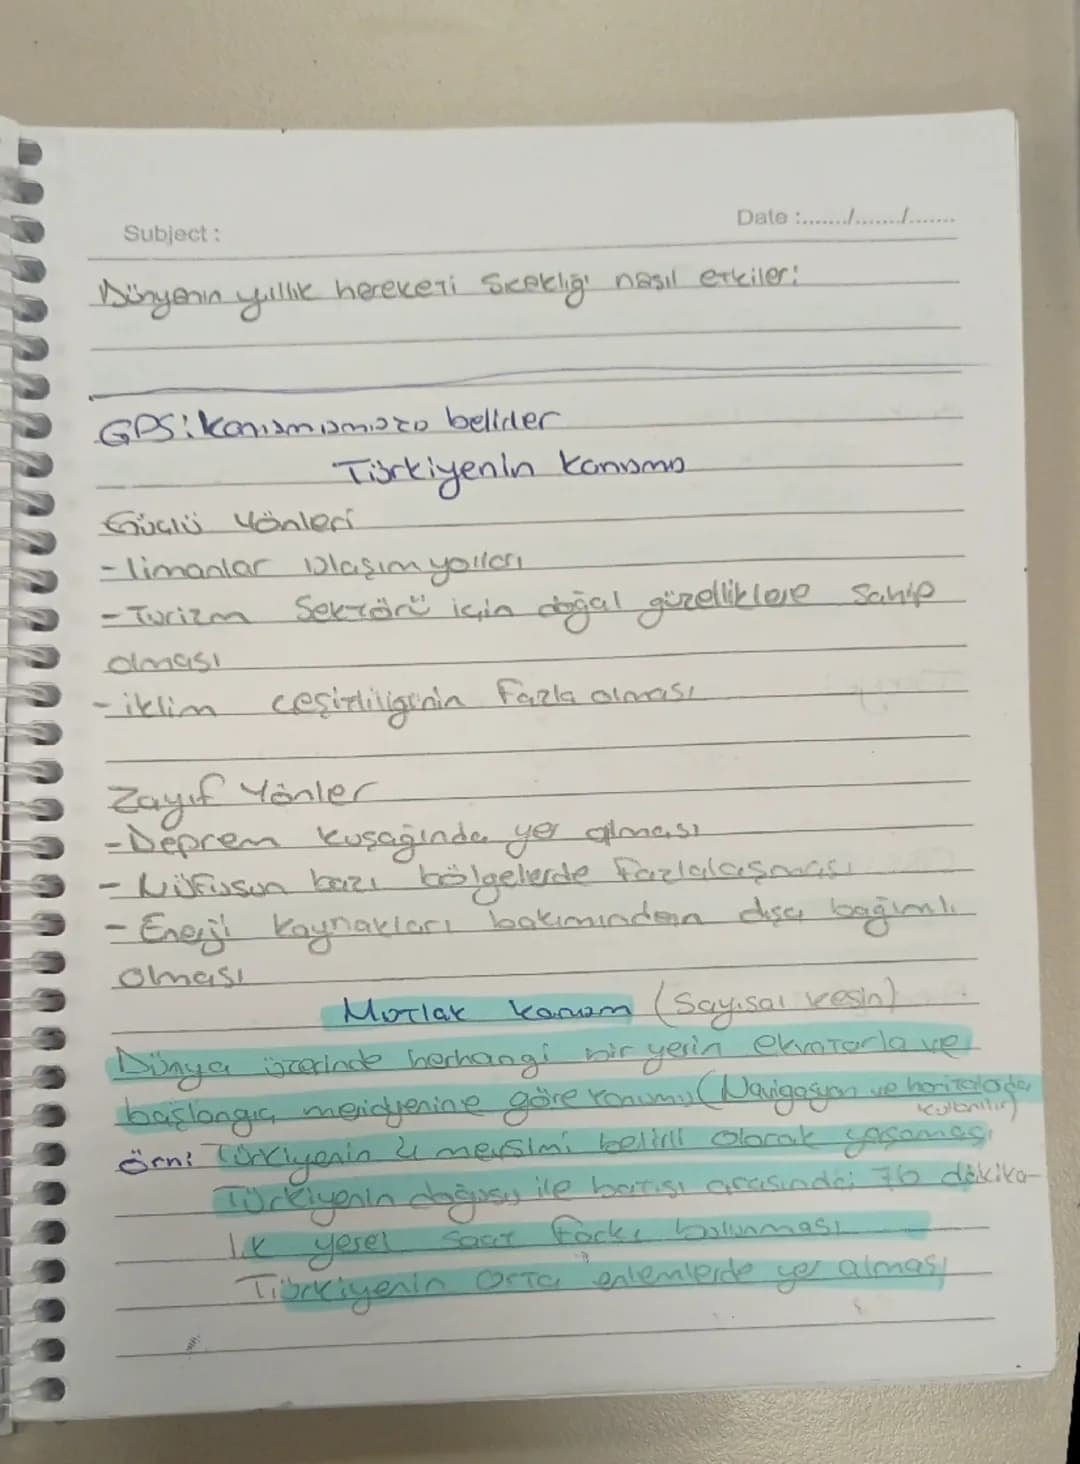 Subject :
Date :......./......./.......
Dünyanın yıllık hareketi Sıcaklığı nasıl etkiler:
GPS: Konumumuzu belirler
Türkiyenin Konumu
Güçlü Yönleri
- limanlar Ulaşım yolları
- Turizm Sektörü için doğal güzelliklere Sahip
olması
- iklim çeşitliliğinin Fazla olması
Zayıf Yönler
- Deprem kuşağında yer alması
- Nüfusun bazı bölgelerde fazlalaşması
- Enerji kaynakları bakımından dışa bağımlı
olması
Mutlak Konum (Sayısal kesin)
Dünya üzerinde herhangi bir yerin ekvatorla ve
başlangıç meridyenine göre konumu (Navigasyon ve haritalarda
kullanılır)
örn: Türkiyenin 4 mevsimi belirli olarak yaşaması
Türkiyenin doğusu ile batısı arasında 76 dakika-
lık yerel Saat farkı bulunması
Türkiyenin Orta enlemlerde yer alması